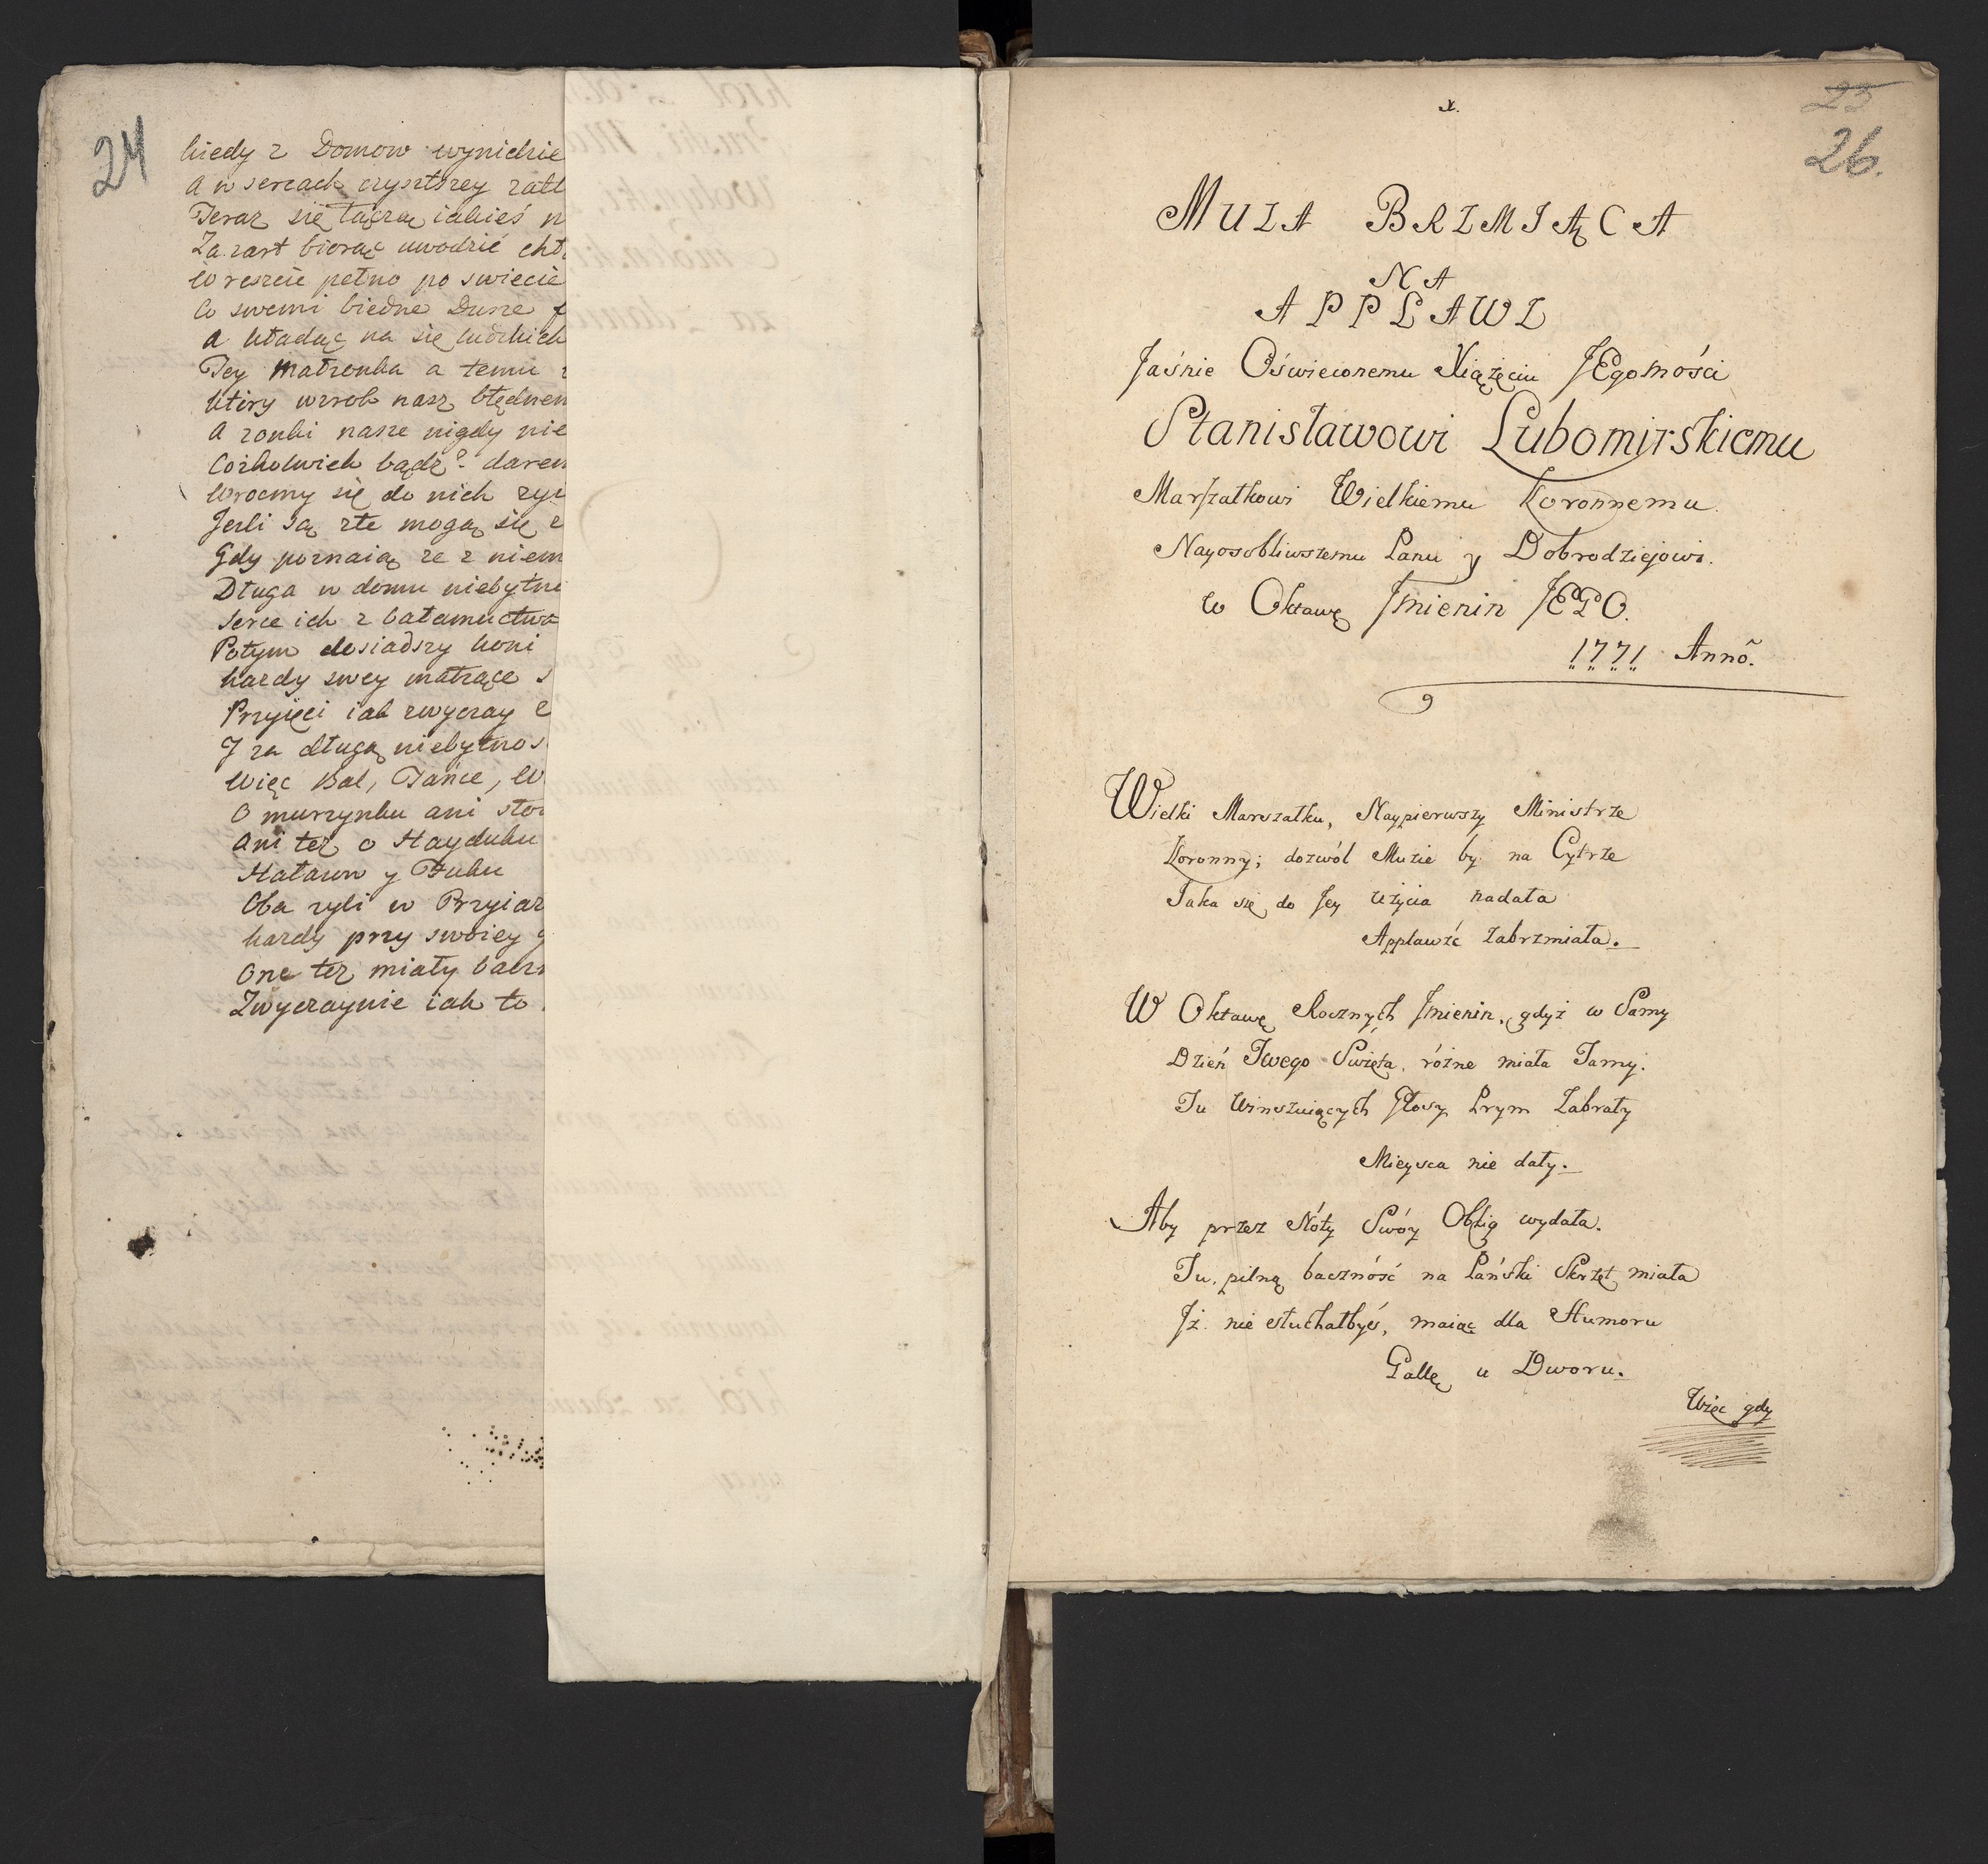 24
kiedy z Domow wynidzie
a w sercach czysztszey
Teraz się łączą iakieś
Za zart biorąc uwodzić
W reszcie pełno po swiecie
Co swemi biedne Dusze
a kładąc na się ludzkich
Tey Matronka a temu
ktory wzrok nasz błędnem
A zonki nasze nigdy nie
Cożkolwiek bądz?
Wrocmy się do nich
Jesli są złe mogą się
Gdy poznaią ze z niem
Długa w domu niebytno
serce ich z bałamuctwa
Potym dosiadszy koni
kazdy swey matrące
Przyięci iak zwyczay
J za długą niebytnos
Więc Bal, Tańce, W
O murzynku ani
Ani też o Hayduku
Hałasu y Fuku
Oba zyli w Przyiaz
kazdy przy swoiey
One też miały
Zwyczaynie iak to
x.
25
26.
MUZA BRZMIĄCA
NA
APPLAWZ
Jaśnie Oświeconemu Xiążęciu JEgomości
Stanisławowi Lubomirskiemu
Marszałkowi Wielkiemu Koronnemu
Nayosobliwszemu Panu y Dobrodziejowi.
w Oktawę Jmienin JEGO.
1771 Annõ.
Wielki Marszałku, Naypierwszy Ministrze
Koronny; dozwól Muzie by na Cytrze
Jaka się do Jey użycia nadała
Applawźć zabrzmiała.
W Oktawę Rocznych Jmienin, gdyż w Samy
Dzień Twego Swięta, różne miała Tamy.
Tu Winszuiących Głosy Prym Zabrały
Mieysca nie dały.
Aby przez Nóty Swóy Oblig wydała.
Tu, pilną baczność na Pański Skrzęt miała
Jż nie słuchałbyś, maiąc dla Humoru
Gallę u Dworu.
Więc gdy